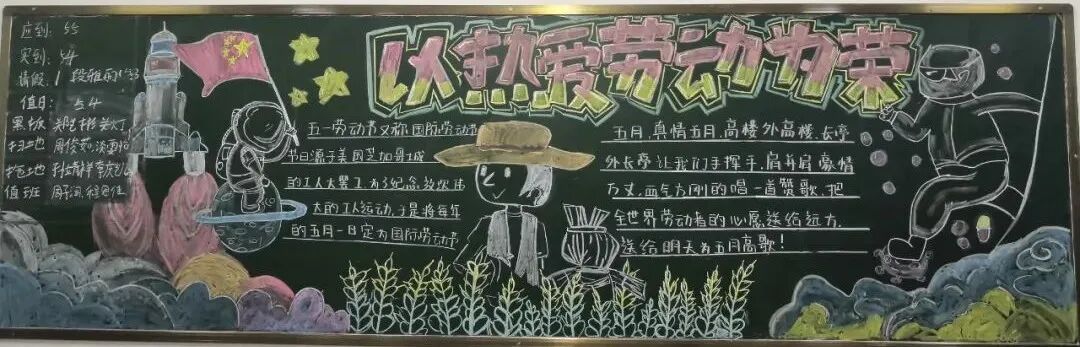 应到: 55
实到: 54
请假: 1 段雅雨
值日: 54
黑板
扫地
拖地
值班
以热爱劳动为荣
五一劳动节又称国际劳动节
节日源于美国芝加哥城
的工人大罢工,为了纪念这次伟
大的工人运动,于是将每年
的五月一日定为国际劳动节
五月,真情五月,高楼外高楼,长亭
外长亭让我们手挥手,肩并肩豪情
万丈,血气方刚的唱一首赞歌,把
全世界劳动者的心愿送给远方,
送给明天为五月高歌!